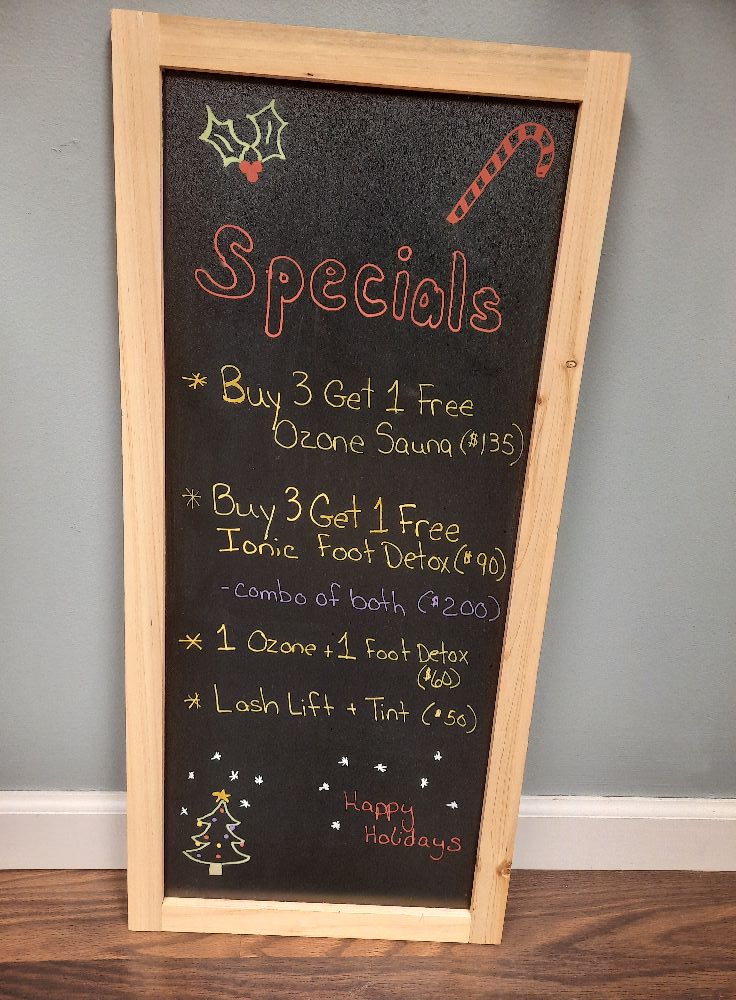 Specials
* Buy 3 Get 1 Free
Ozone Sauna ($135)
* Buy 3 Get 1 Free
Ionic Foot Detox ($90)
-combo of both ($200)
* 1 Ozone + 1 Foot Detox
($60)
* Lash Lift + Tint ($50)
Happy
Holidays